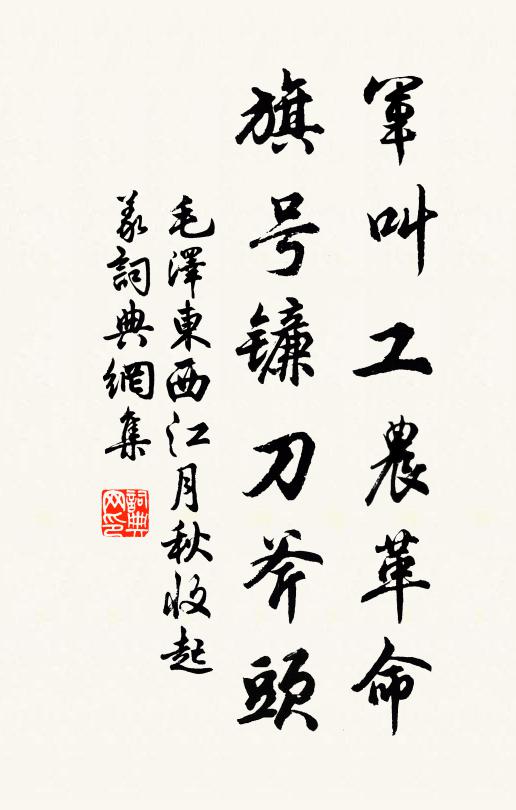 軍叫工農革命
旗号镰刀斧頭
毛澤東西江月秋收起
义詞典網集
詞典网印